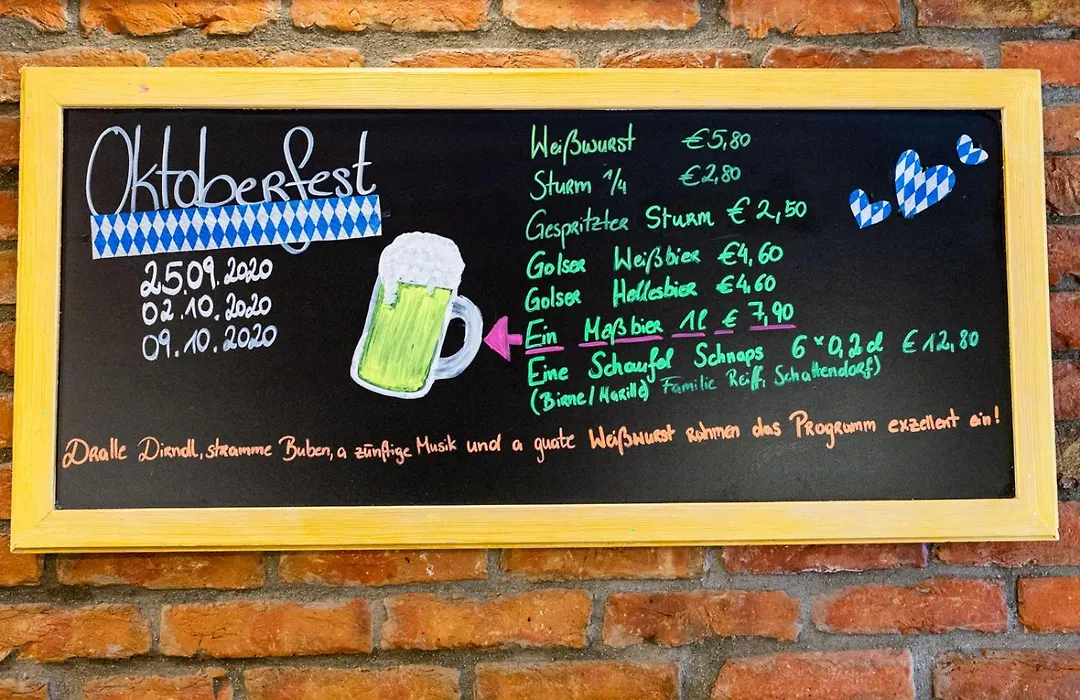 Oktoberfest
25.09.2020
02.10.2020
09.10.2020
Weißwurst €5,80
Sturm 1/4 €2,80
Gespritzter Sturm €2,50
Golser Weißbier €4,60
Golser Hellesbier €4,60
Ein Maßbier 1l € 7,90
Eine Schaufel Schnaps 6 x 0,2 dl € 12,80
(Birne/Marille) Familie Reiff, Schattendorf)
Dralle Dirndl, stramme Buben, a zünftige Musik und a guate Weißwurst rahmen das Programm exzellent ein!